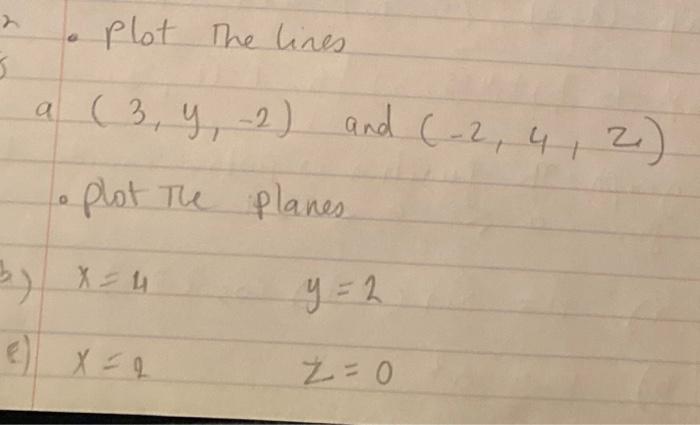 • Plot The lines
a (3, y, -2) and (-2, 4, z)
• plot The planes
b) x = 4 y = 2
c) x = 2 z = 0